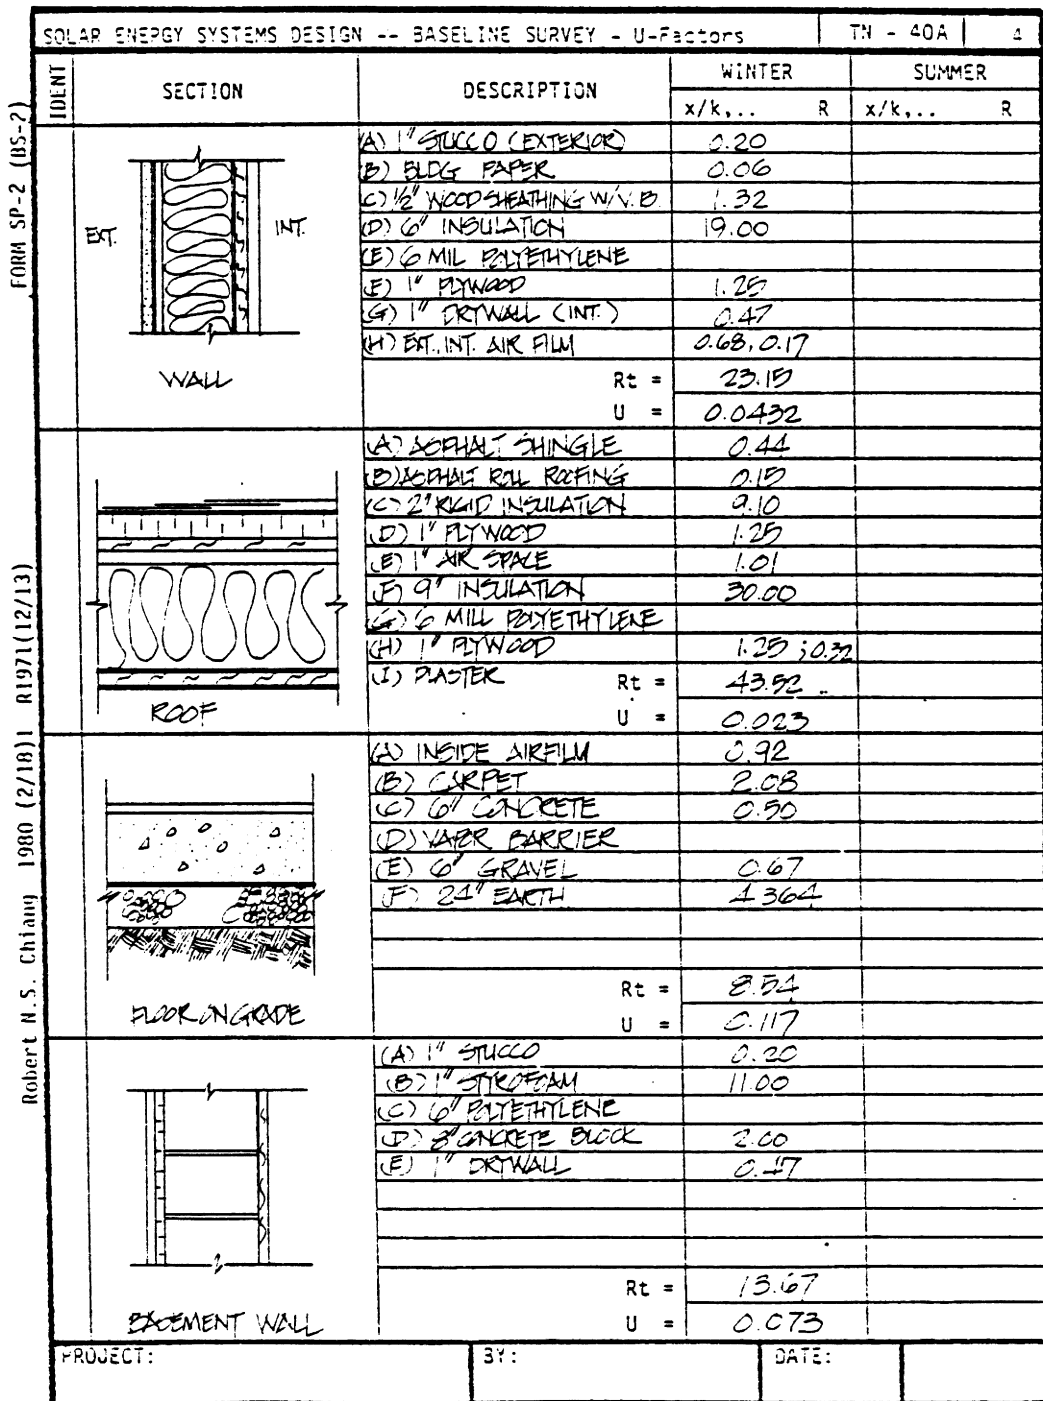 SOLAR ENERGY SYSTEMS DESIGN -- BASELINE SURVEY - U-Factors TN - 40A 4
IDENT SECTION DESCRIPTION WINTER SUMMER
x/k,.. R x/k,.. R
FORM SP-2 (BS-2)
Robert N.S. Chiang 1980 (2/18)1 R1971(12/13)
EXT. INT.
WALL
(A) 1" STUCCO (EXTERIOR) 0.20
(B) BLDG PAPER 0.06
(C) 1/2" WOOD SHEATHING W/V.B. 1.32
(D) 6" INSULATION 19.00
(E) 6 MIL POLYETHYLENE
(E) 1" PLYWOOD 1.25
(G) 1" DRYWALL (INT.) 0.47
(H) EXT., INT. AIR FILM 0.68, 0.17
Rt = 23.15
U = 0.0432
ROOF
(A) ASPHALT SHINGLE 0.44
(B) ASPHALT ROLL ROOFING 0.15
(C) 2" RIGID INSULATION 9.10
(D) 1" PLYWOOD 1.25
(E) 1" AIR SPACE 1.01
(F) 9" INSULATION 30.00
(G) 6 MILL POLYETHYLENE
(H) 1" PLYWOOD 1.25 ; 0.32
(I) PLASTER Rt = 43.52
U = 0.023
FLOOR ON GRADE
(A) INSIDE AIRFILM 0.92
(B) CARPET 2.08
(C) 6" CONCRETE 0.50
(D) VAPOR BARRIER
(E) 6" GRAVEL 0.67
(F) 24" EARTH 4.364
Rt = 8.54
U = 0.117
BASEMENT WALL
(A) 1" STUCCO 0.20
(B) 1" STYROFOAM 11.00
(C) 6" POLYETHYLENE
(D) 8" CONCRETE BLOCK 2.00
(E) 1" DRYWALL 0.47
Rt = 13.67
U = 0.073
PROJECT: BY: DATE: